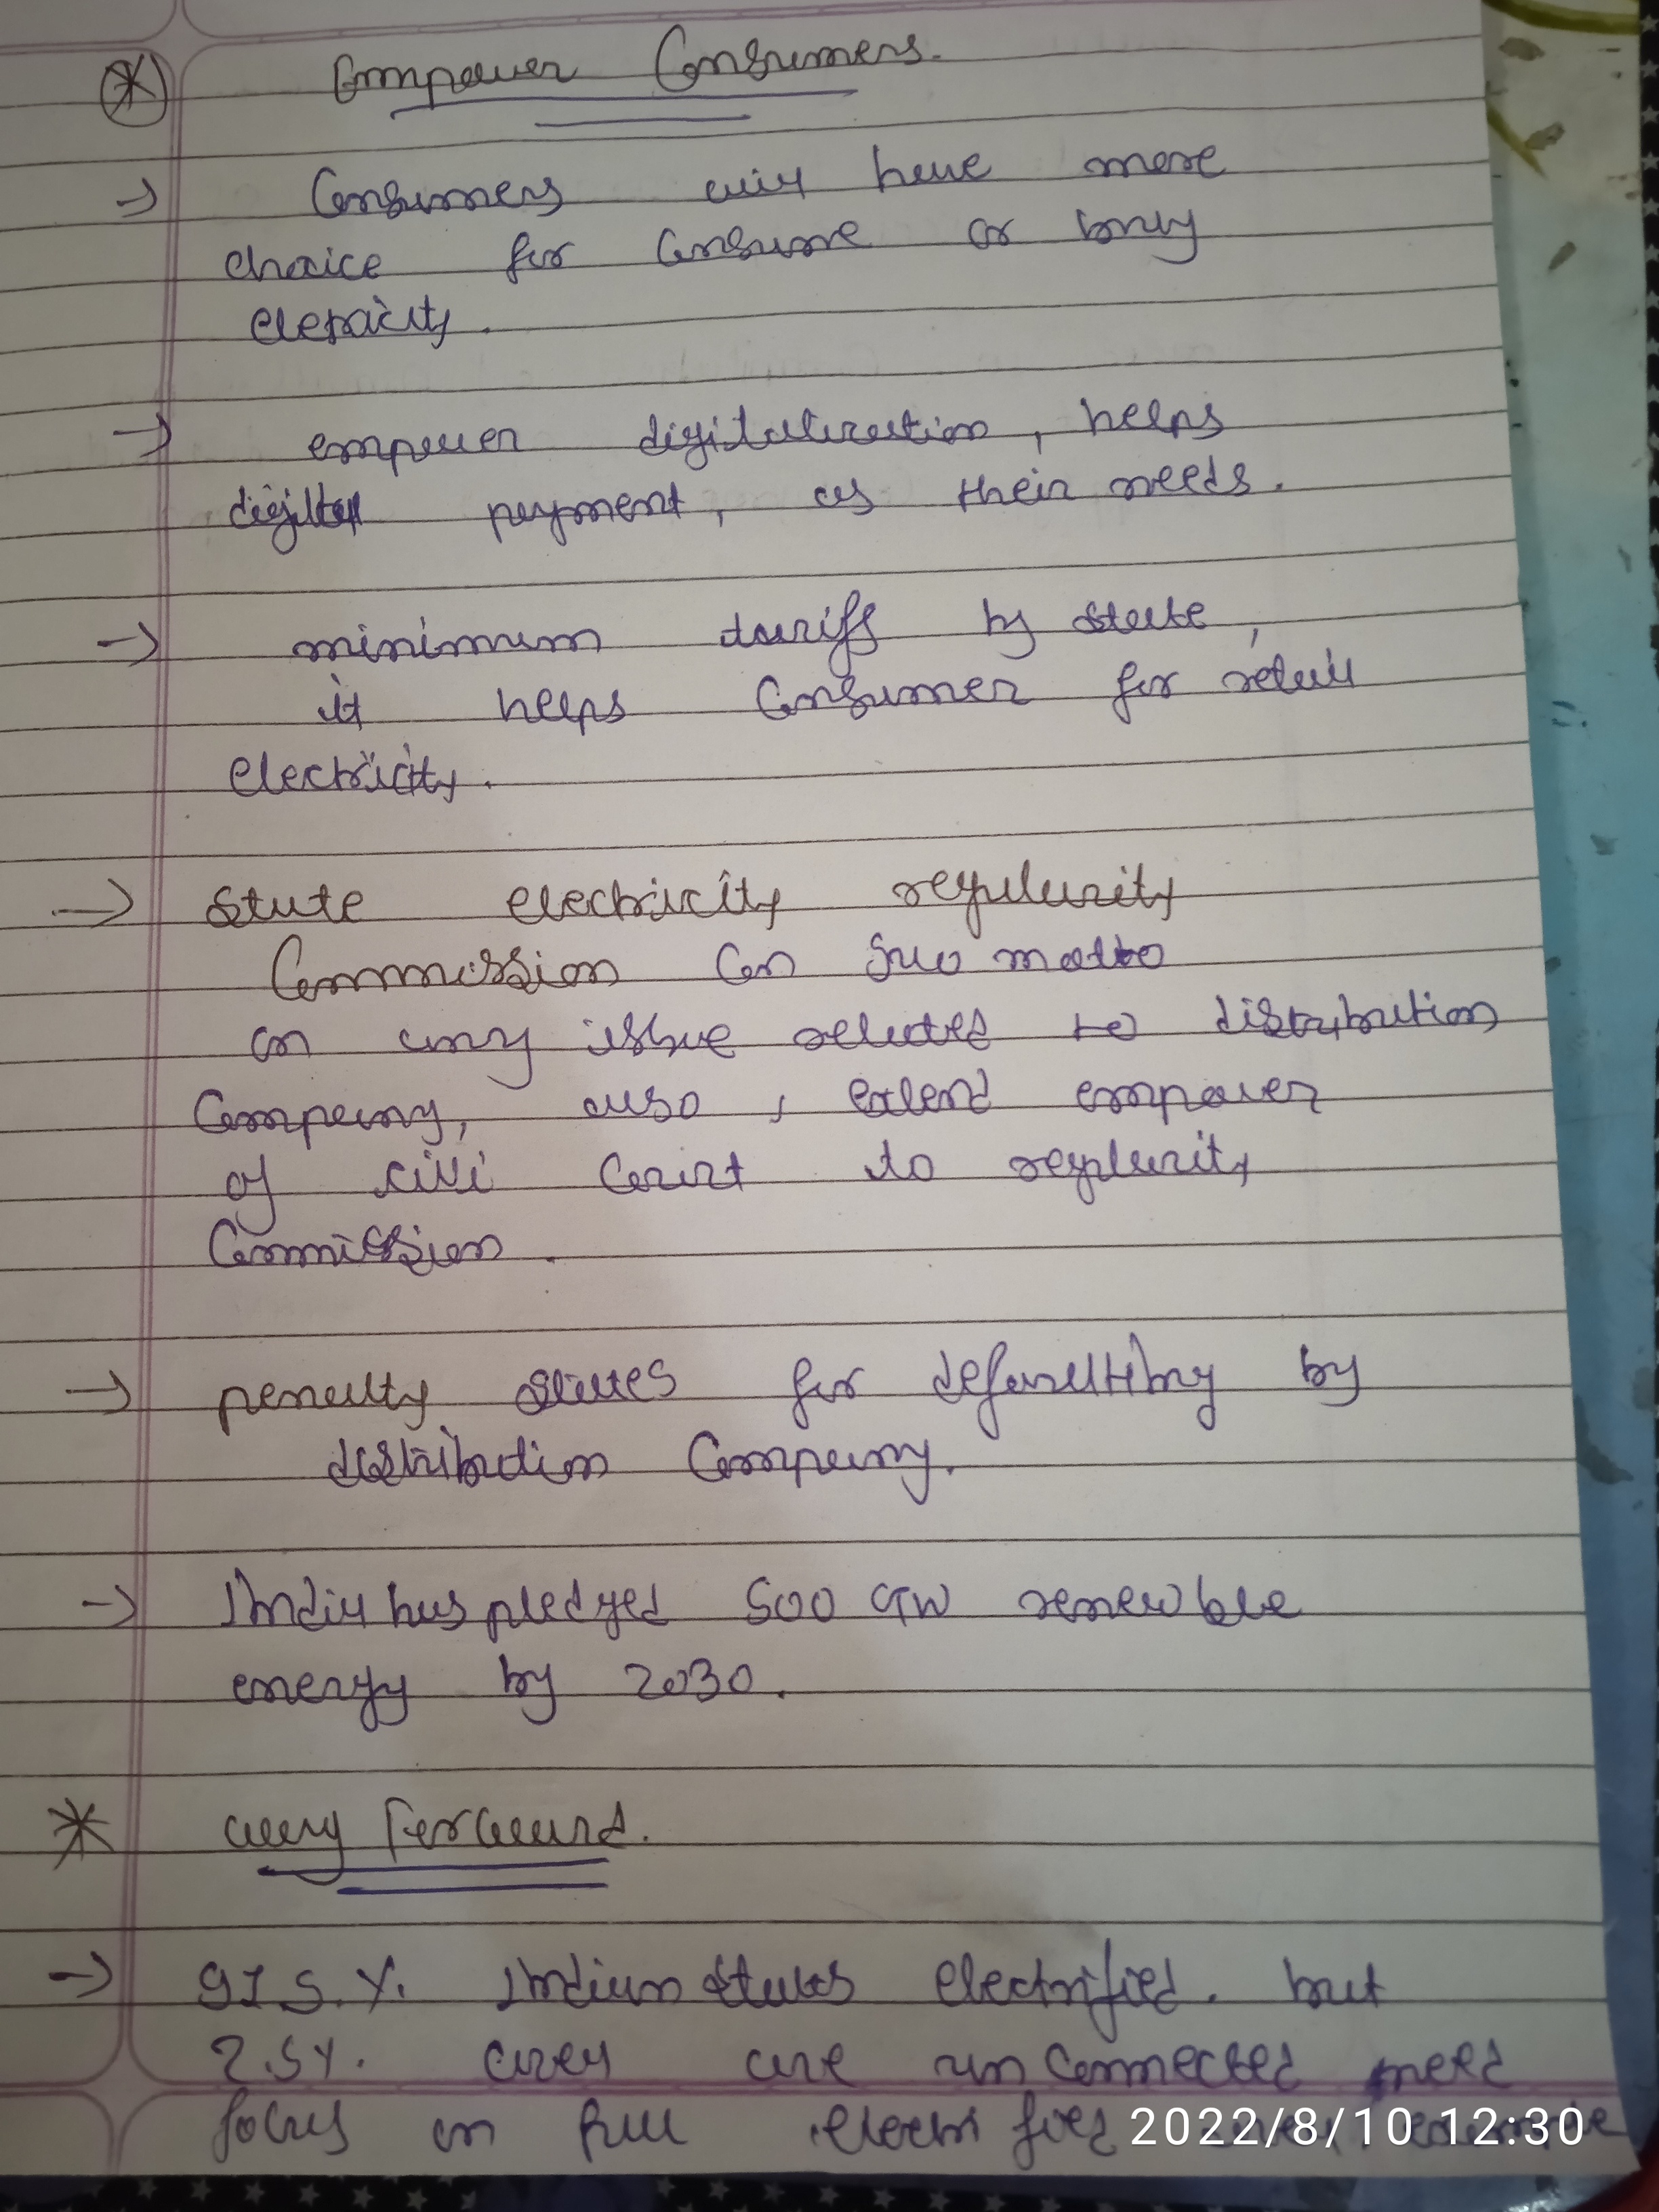 Empower Consumers.
→ Consumers will have more
choice for consume or buy
elericity.
→ empower digitalization, helps
digital payment, as their needs.
→ minimum tariff by state,
it helps consumer for retail
electricity.
→ State electricity regularity
Commission can suo motto
on any issue related to distribution
Company, also, extend empower
of civil court to regularity
Commission.
→ penalty states for defaulting by
distribution Company.
→ India has pledged 500 GW renewble
energy by 2030.
* way Forward.
→ 97.5%. Indian states electrified. but
2.5%. area are unconnected need
focus on full
2022/8/10 12:30